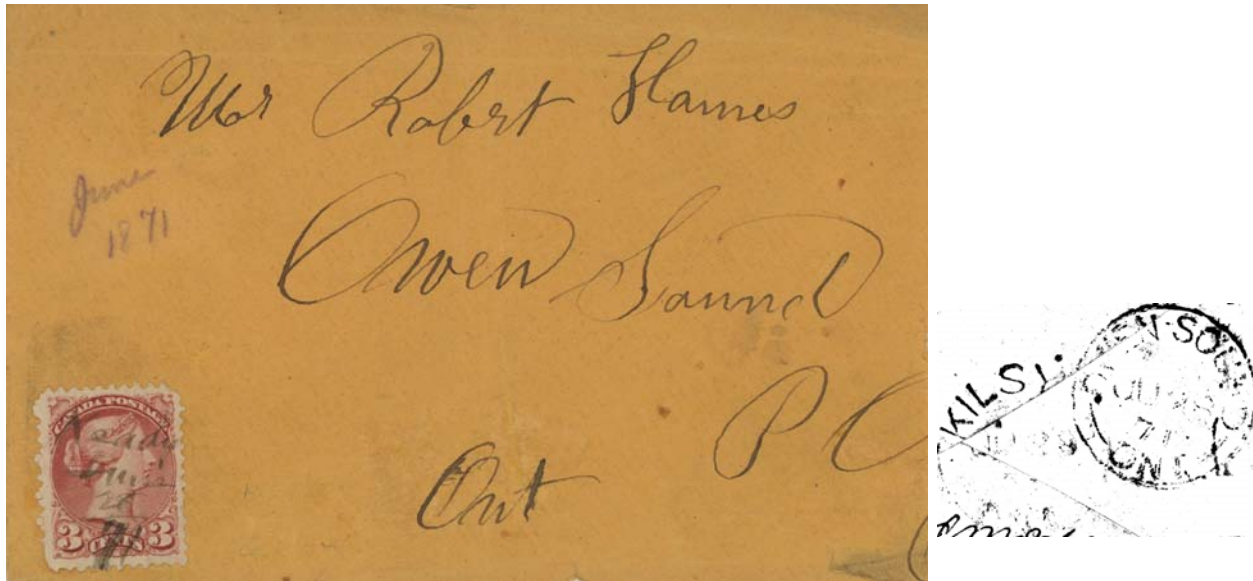 Mr Robert Hames
June
1871
Owen Sound
P O
Ont
CANADA POSTAGE
3 CENTS 3
KILSY
EN SOUND
JU 28
71
ONT